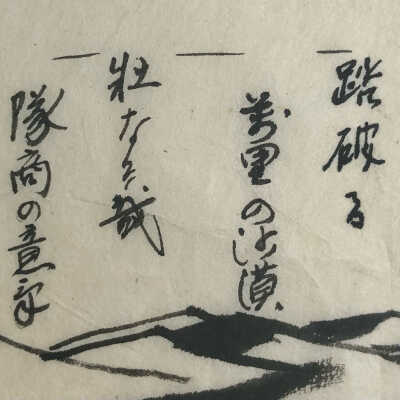 踏破る
萬里の沙漠
壮なる哉
隊商の意気